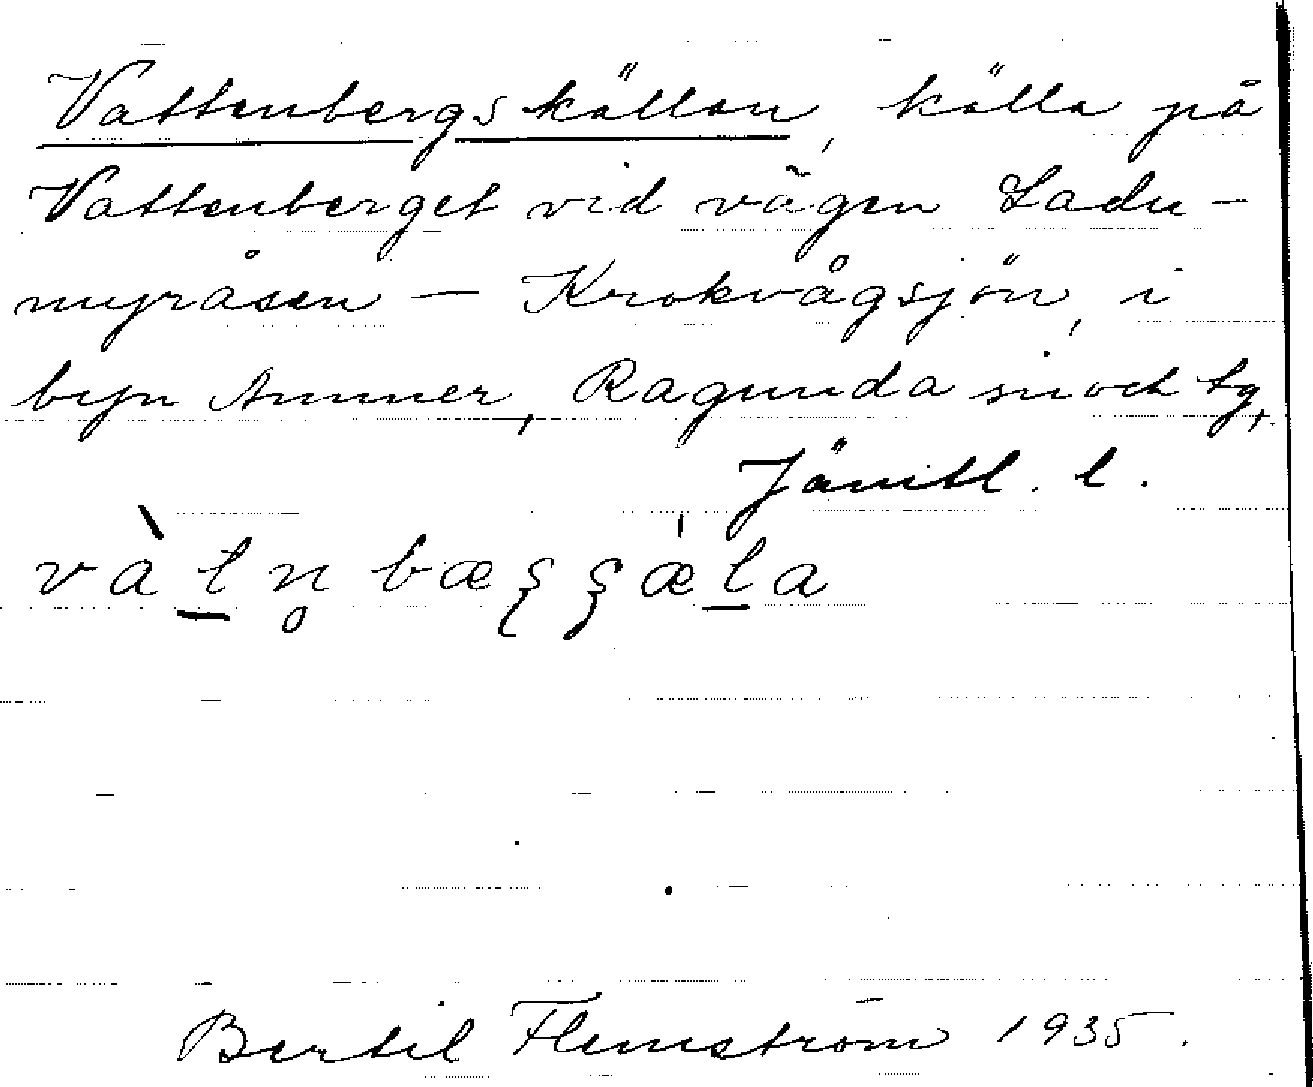 Vattenbergskällan, källa på
Vattenberget vid vägen Ladu-
myråsen — Krokvågsjön, i
byn Ammer, Ragunda sn och tg,
Jämtl. l.
vàt̲n̥ bæʂʂæ̍l̲a
Bertil Flemström 1935.